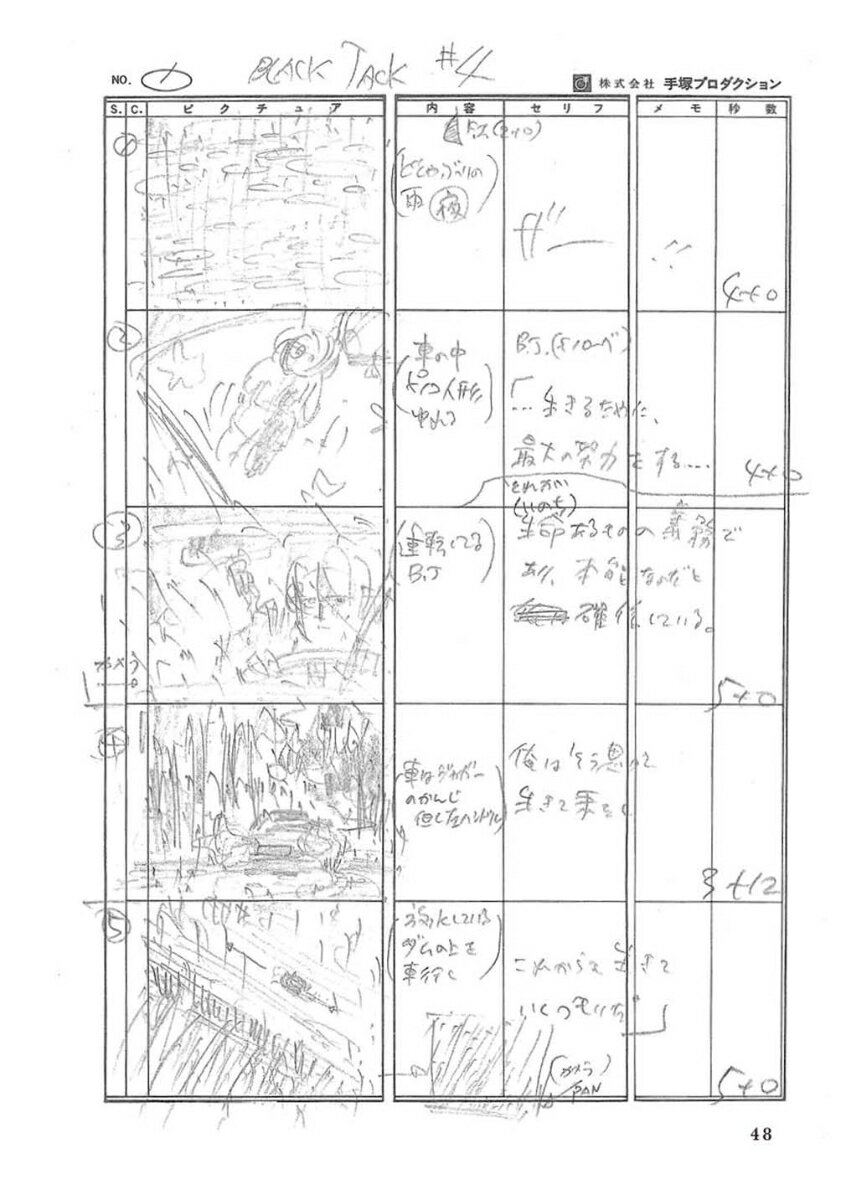 NO. 1
BLACK JACK #4
株式会社 手塚プロダクション
S. C. ピクチュア 内容 セリフ メモ 秒数
①
F.I. (2+0)
(どしゃぶりの
雨 夜)
ザー
4+0
②
(車の中
ピノコ人形
ゆれる)
B.J. (モノローグ)
「…生きるために、
最大の努力をする…
4+0
③
(運転してる
B.J)
それが
(いのち)
生命あるものの義務で
あり、本能なのだと
確信している。
カメラ
5+0
④
(車はジャガー
のかんじ
但し左ハンドル)
俺はそう思って
生きて来たし
3+12
⑤
(放水している
ダムの上を
車行く)
これからも生きて
いくつもりだ」
(カメラ)
PAN
5+0
48